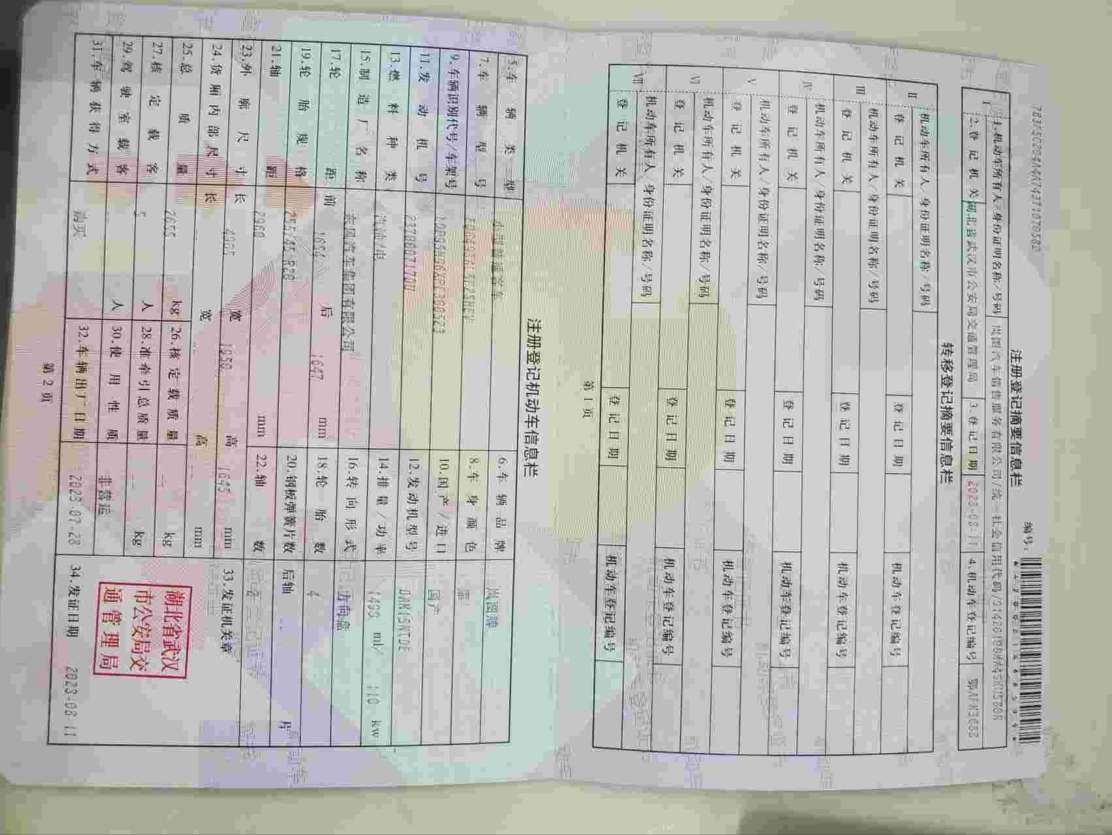 注册登记摘要信息栏
编号:
Ⅰ
1.机动车所有人/身份证明名称/号码 岚图汽车销售服务有限公司/统一社会信用代码/
2.登记机关 湖北省武汉市公安局交通管理局 3.登记日期 2023-08-11 4.机动车登记编号
转移登记摘要信息栏
Ⅱ 机动车所有人/身份证明名称/号码
登记机关 登记日期 机动车登记编号
Ⅲ 机动车所有人/身份证明名称/号码
登记机关 登记日期 机动车登记编号
Ⅳ 机动车所有人/身份证明名称/号码
登记机关 登记日期 机动车登记编号
Ⅴ 机动车所有人/身份证明名称/号码
登记机关 登记日期 机动车登记编号
Ⅵ 机动车所有人/身份证明名称/号码
登记机关 登记日期 机动车登记编号
Ⅶ 机动车所有人/身份证明名称/号码
登记机关 登记日期 机动车登记编号
第1页
注册登记机动车信息栏
5.车辆类型 6.车辆品牌 岚图牌
7.车辆型号 8.车身颜色
9.车辆识别代号/车架号 10.国产/进口 国产
11.发动机号 12.发动机型号
13.燃料种类 14.排量/功率 1499 ml/ 110 kw
15.制造厂名称 东风汽车集团有限公司 16.转向形式 方向盘
17.轮距 前 后 1647 mm 18.轮胎数 4
19.轮胎规格 255/45 R20 20.钢板弹簧片数 后轴 -- 片
21.轴距 2960 mm 22.轴数
23.外廓尺寸 长 4905 宽 1950 高 1645 mm 33.发证机关章
24.货厢内部尺寸 长 宽 高 mm
25.总质量 2655 kg 26.核定载质量 -- kg
27.核定载客 5 人 28.准牵引总质量 -- kg
29.驾驶室载客 -- 人 30.使用性质 非营运
31.车辆获得方式 购买 32.车辆出厂日期 2023-07-28 34.发证日期 2023-08-11
湖北省武汉
市公安局交
通管理局
第2页